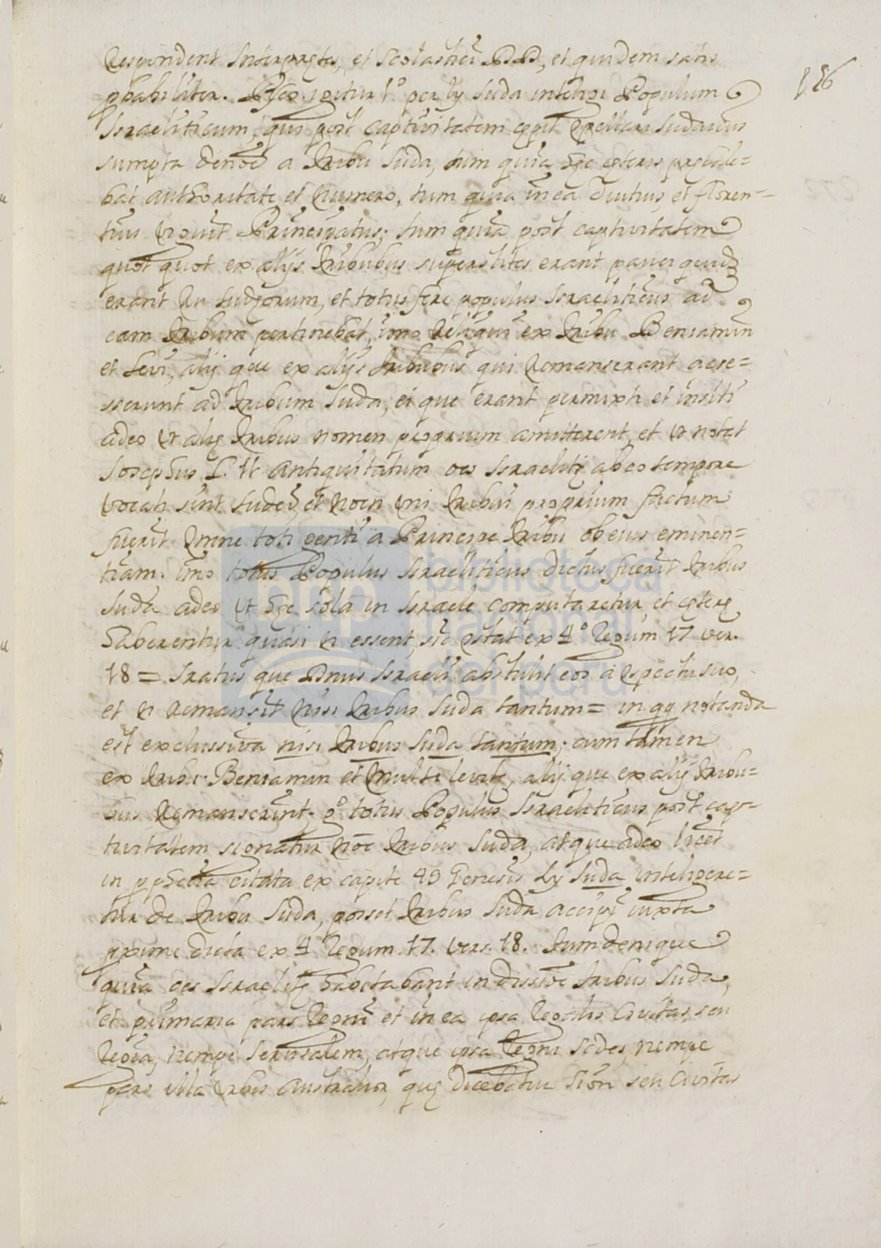 Respondent Interpretes, et Scolastici DD, et quidem satis
pbabiliter. Dico igitur 1º per ly Juda intelligi Populum
Israeliticum, qui post captivitatem cepit apellari Judaicus
sumpta denõe a tribu Juda, tum quia hęc ceteris prevale=
bat authoritate et numero, tum quia in ea diutius, et floren=
tius viguit Principatus; tum quia post captivitatem
quot quot ex alijs tribubus superstites erant pauci quidẽ
erant Judęorum, et totus fere populus Israeliticus ad
eam tribum pertinebat, imo reliqui ex tribu Beniamin
et Levi, alij que ex alijs tribubus qui remanserant acce=
sserunt ad tribum Juda, ei que erant permixti et insiti
adeo ut alię tribus nomen proprium amitterent, et ut notat
Josephus L. 11 antiquitatum oẽs Israelitę ab eo tempore
vocati sint Judei, et nomen uni tribui proprium factum
fuerit omne toti genti a Principe tribu ob eius eminen=
tiam. imo totus Populus Israeliticus dictus fuerit tribus
Juda adeo ut hęc sola in Israele computaretur, et cęterę
haberentur quasi ñ essent, sic cõstat ex 4º Regum 17 ver.
18 = Iratus que Dnus Israeli abstulit eos a cõspectu suo,
et ñ remansit nisi tribus Juda tantum = in qq notanda
est exclussiva nisi tribus Juda tantum; cum tamen
ex tribu Beniamin et multi levitę, alij que ex alijs tribu=
bus remanserint. gº totus Populus Israeliticus post cap=
tivitatem signatur nõe tribus Juda, atque adeo licet
in pphetia citata ex capite 49 Genesis ly Juda intelligere=
tur de tribu Juda, posset tribus Juda accipi iuxta
pxime dicta ex 4 Regum. 17. vers. 18. Tum denique
quia oẽs Israelitę habitabant in tribus Juda,
et primaria pars Regni et in ea ipsa Regalis Civitas, seu
Regia, nempe Jerusalem, atque ipsa Regni sedes, nempe
pars illa Urbis australior, quę dicebatur Sion seu Civitas
186
biblioteca
nacional
del perú